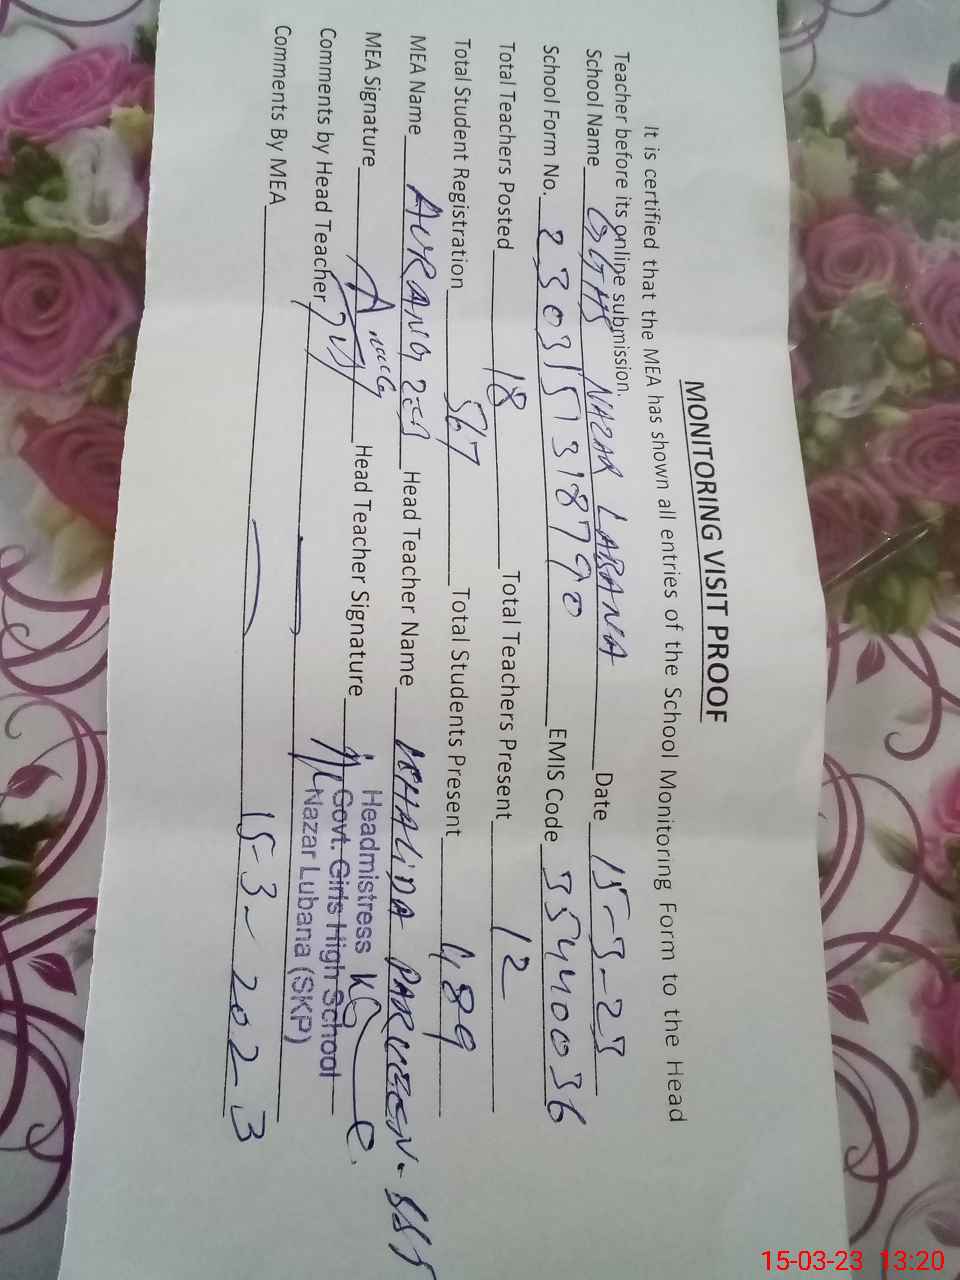 MONITORING VISIT PROOF
It is certified that the MEA has shown all entries of the School Monitoring Form to the Head
Teacher before its online submission.
School Name GGHS NAZAR LABANA Date 15-3-23
School Form No. 2303151318790 EMIS Code 35440036
Total Teachers Posted 18 Total Teachers Present 12
Total Student Registration 567 Total Students Present 489
MEA Name AURANGZEB Head Teacher Name KHALIDA PARVEEN. SST
MEA Signature Head Teacher Signature
Headmistress
Govt. Girls High School
Nazar Lubana (SKP)
Comments by Head Teacher
Comments By MEA 15-3-2023
15-03-23 13:20